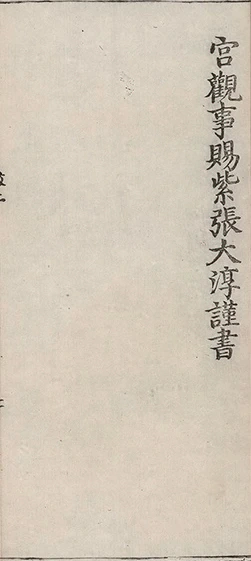 宮觀事賜紫張大淳謹書